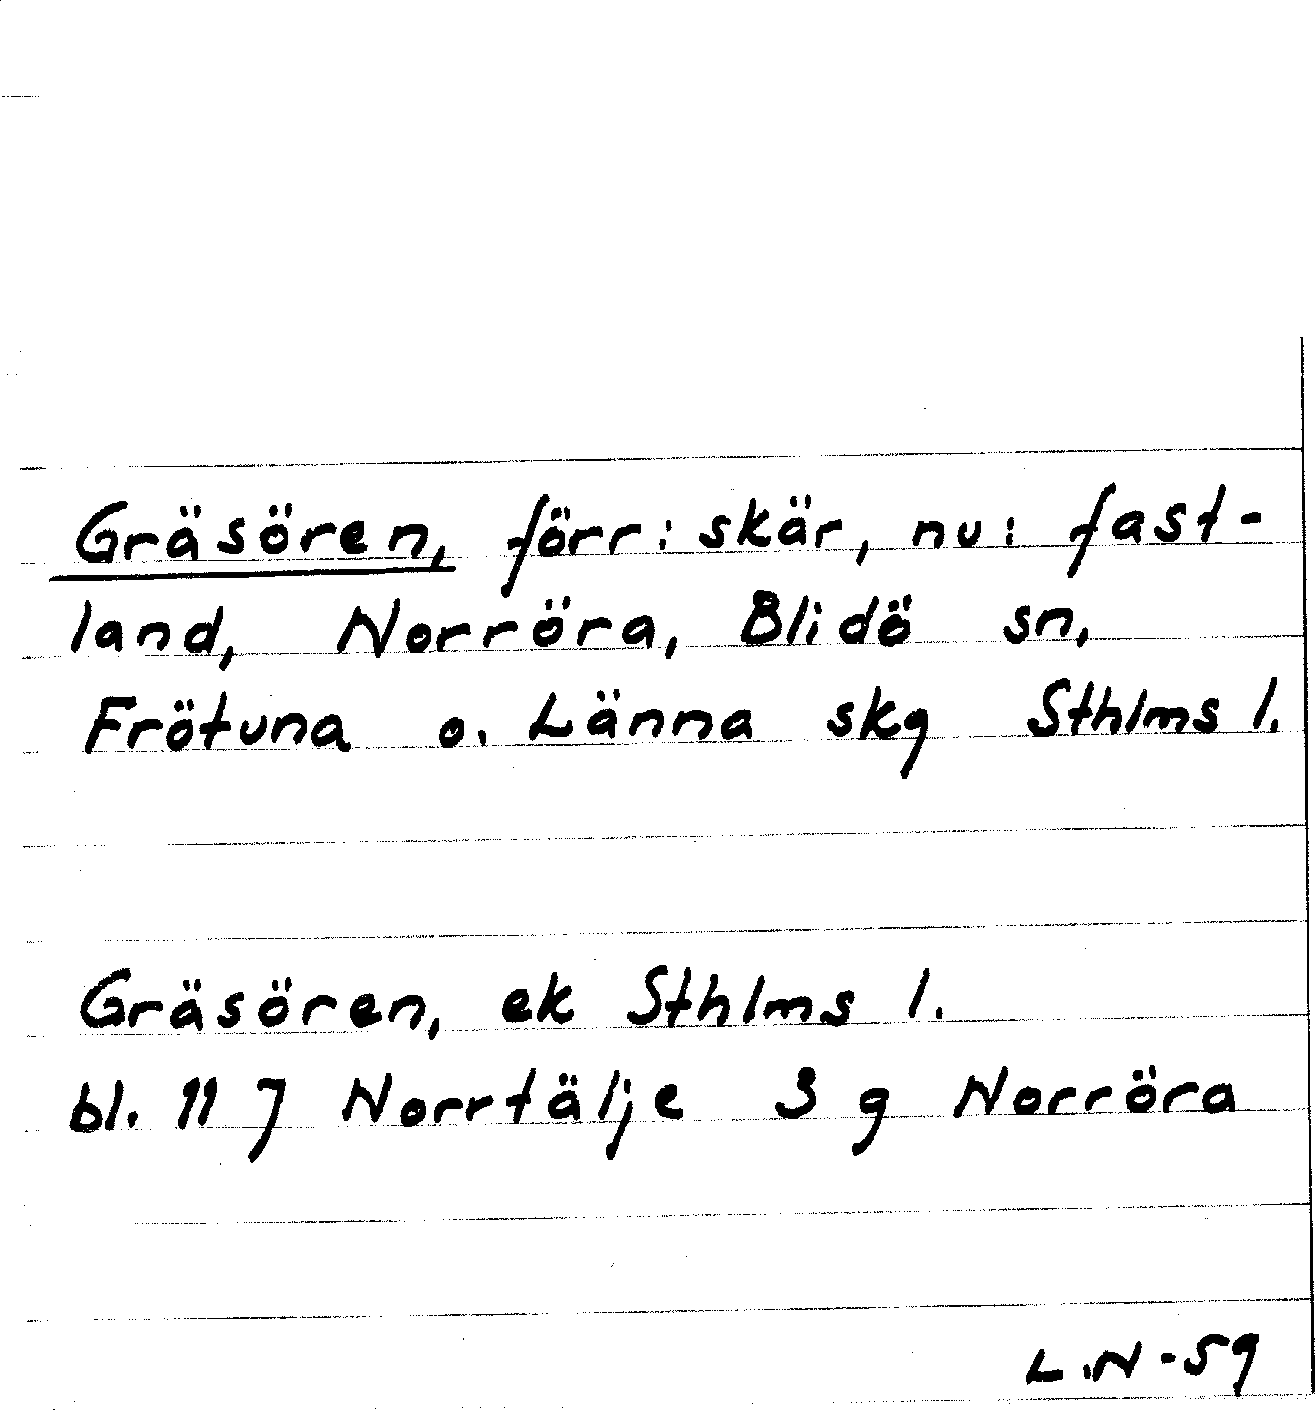 Gräsören, förr: skär, nu: fast-
land, Norröra, Blidö sn,
Frötuna o. Länna skg Sthlms l.
Gräsören, ek Sthlms l.
bl. 11 J Norrtälje 3 g Norröra
L.N-59